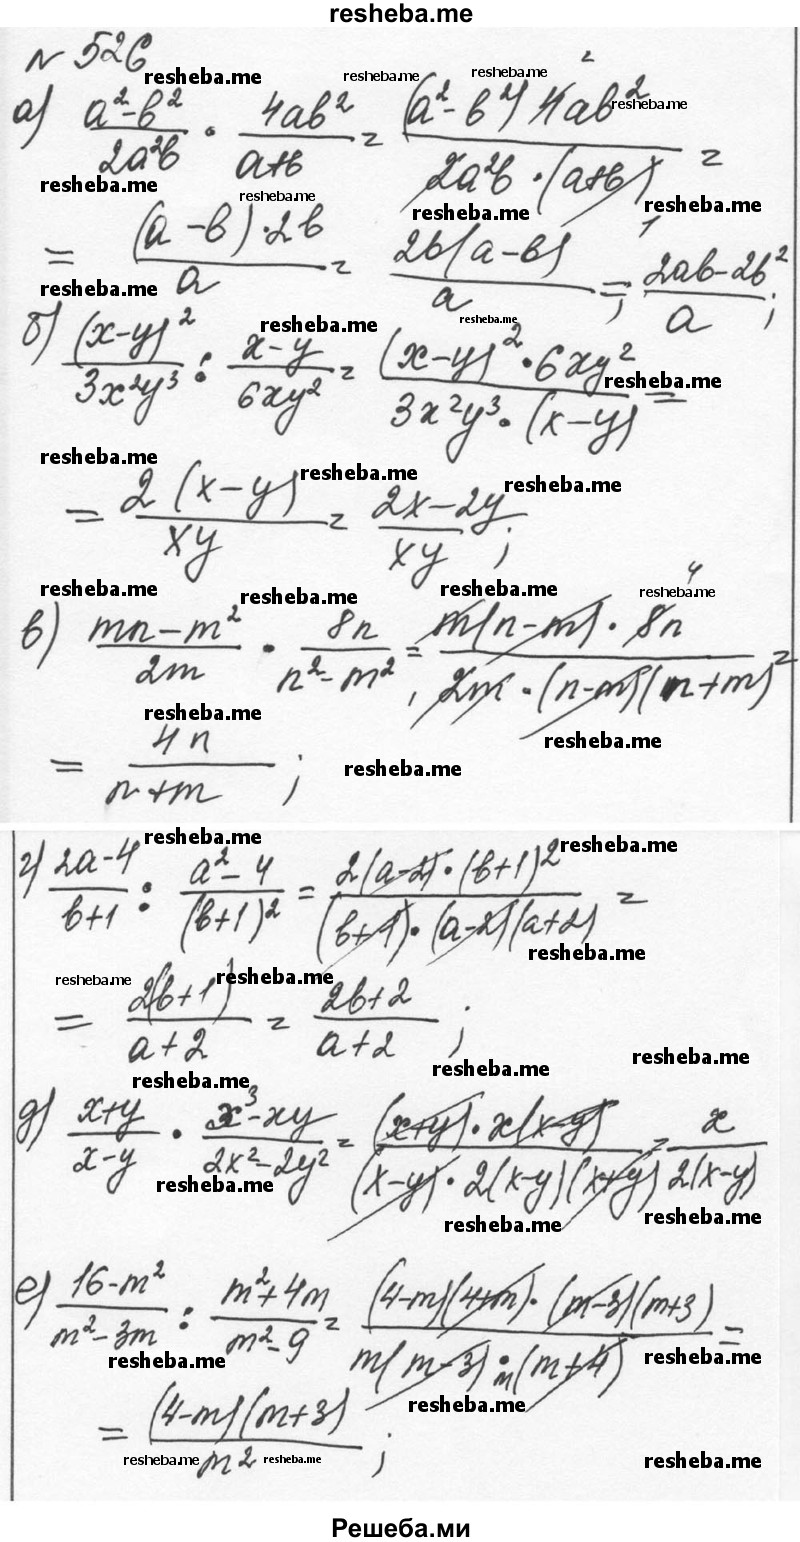 resheba.me
№ 526
а) (a²-b²)/(2a²b) · (4ab²)/(a+b) = ((a²-b²) 4ab²)/(2a²b · (a+b)) =
= ((a-b)·2b)/a = (2b(a-b))/a = (2ab-2b²)/a ;
б) (x-y)²/(3x²y³) : (x-y)/(6xy²) = ((x-y)² · 6xy²)/(3x²y³ · (x-y)) =
= (2(x-y))/(xy) = (2x-2y)/(xy) ;
в) (mn-m²)/(2m) · (8n)/(n²-m²) = (m(n-m) · 8n)/(2m · (n-m)(n+m)) =
= (4n)/(n+m) ;
г) (2a-4)/(b+1) : (a²-4)/(b+1)² = (2(a-2)·(b+1)²)/((b+1)·(a-2)(a+2)) =
= (2(b+1))/(a+2) = (2b+2)/(a+2) ;
д) (x+y)/(x-y) · (x³-xy)/(2x²-2y²) = ((x+y)·x(x-y))/((x-y)·2(x-y)(x+y)) = x/(2(x-y))
е) (16-m²)/(m²-3m) : (m²+4m)/(m²-9) = ((4-m)(4+m)·(m-3)(m+3))/(m(m-3)·m(m+4)) =
= ((4-m)(m+3))/m² ;
Решеба.ми